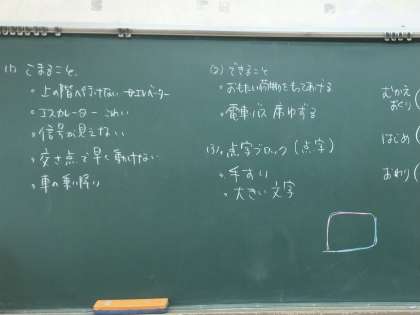 (1) こまること
。上の階へ行けない エレベーター
。エスカレーター こわい
。信号が見えない
。交さ点で早く動けない
。車の乗り降り
(2) できること
。おもたい荷物をもってあげる
。電車 バス 席ゆずる
(3)。点字ブロック (点字)
。手すり
。大きい文字
むかえ
おくり (
はじめ (
おわり (